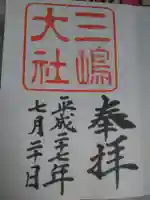 奉拝
三嶋
大社
平成二十七年
七月二十日